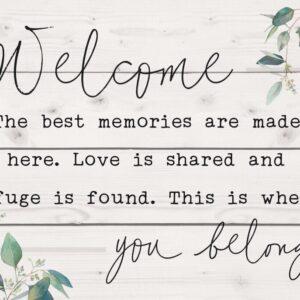 Welcome
The best memories are made
here. Love is shared and
fuge is found. This is whe
you belong